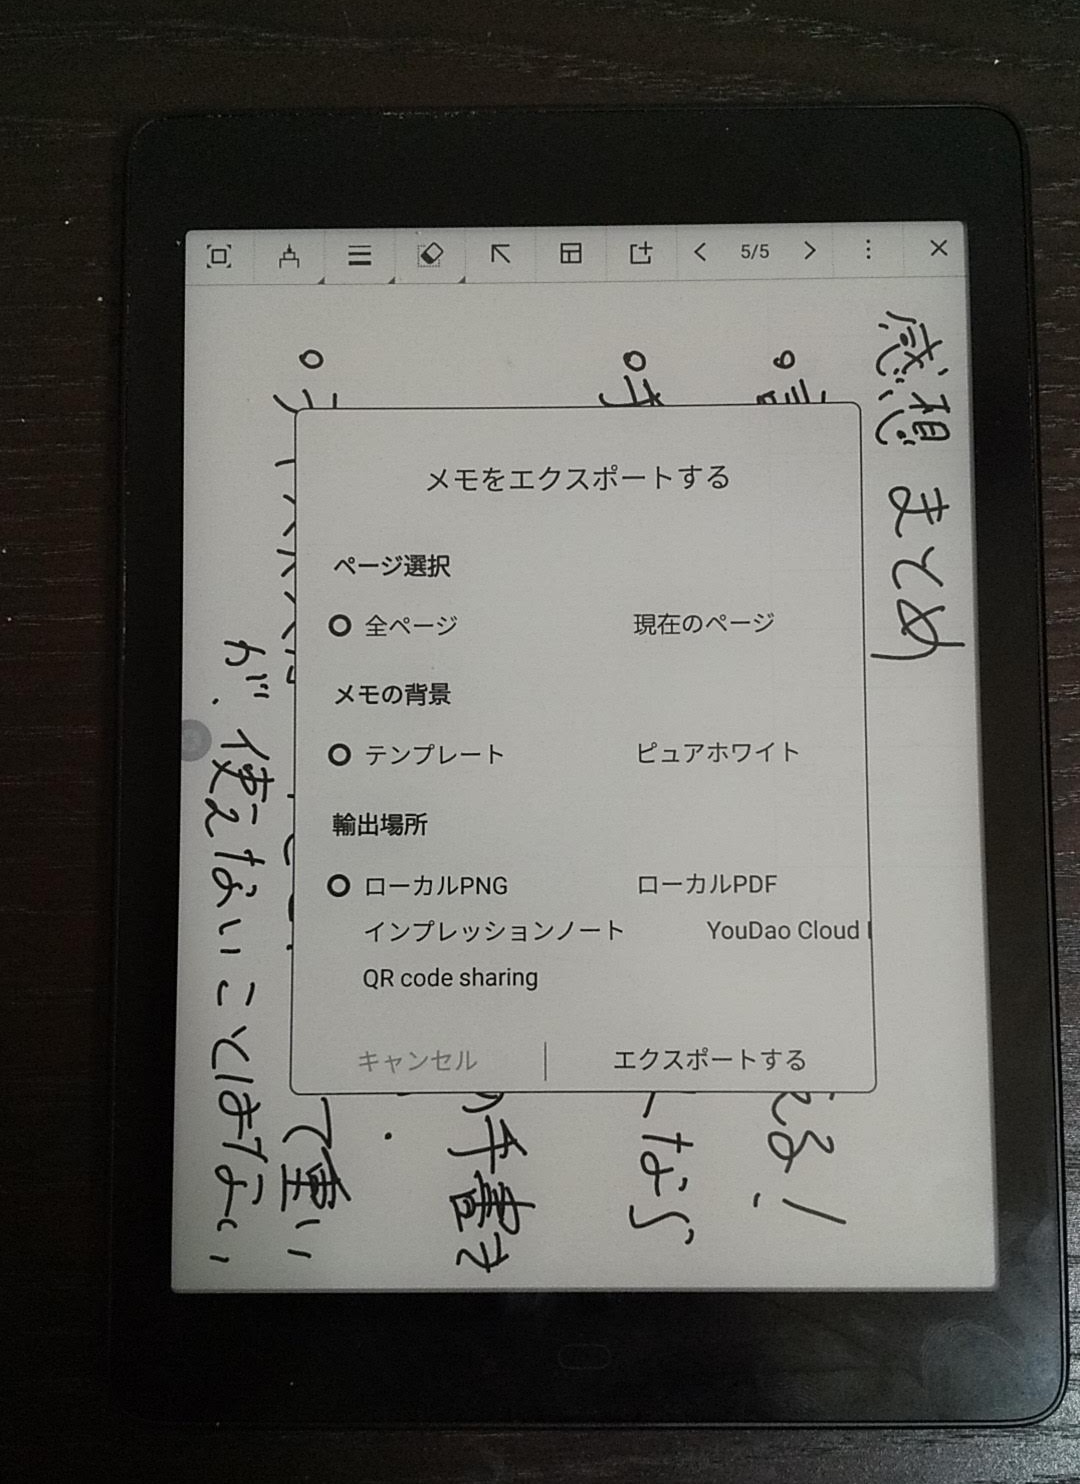 5/5
メモをエクスポートする
ページ選択
全ページ 現在のページ
メモの背景
テンプレート ピュアホワイト
輸出場所
ローカルPNG ローカルPDF
インプレッションノート YouDao Cloud
QR code sharing
キャンセル エクスポートする
感想 まとめ
える!
なら
の手書き
て重い
が、使えないことはない。